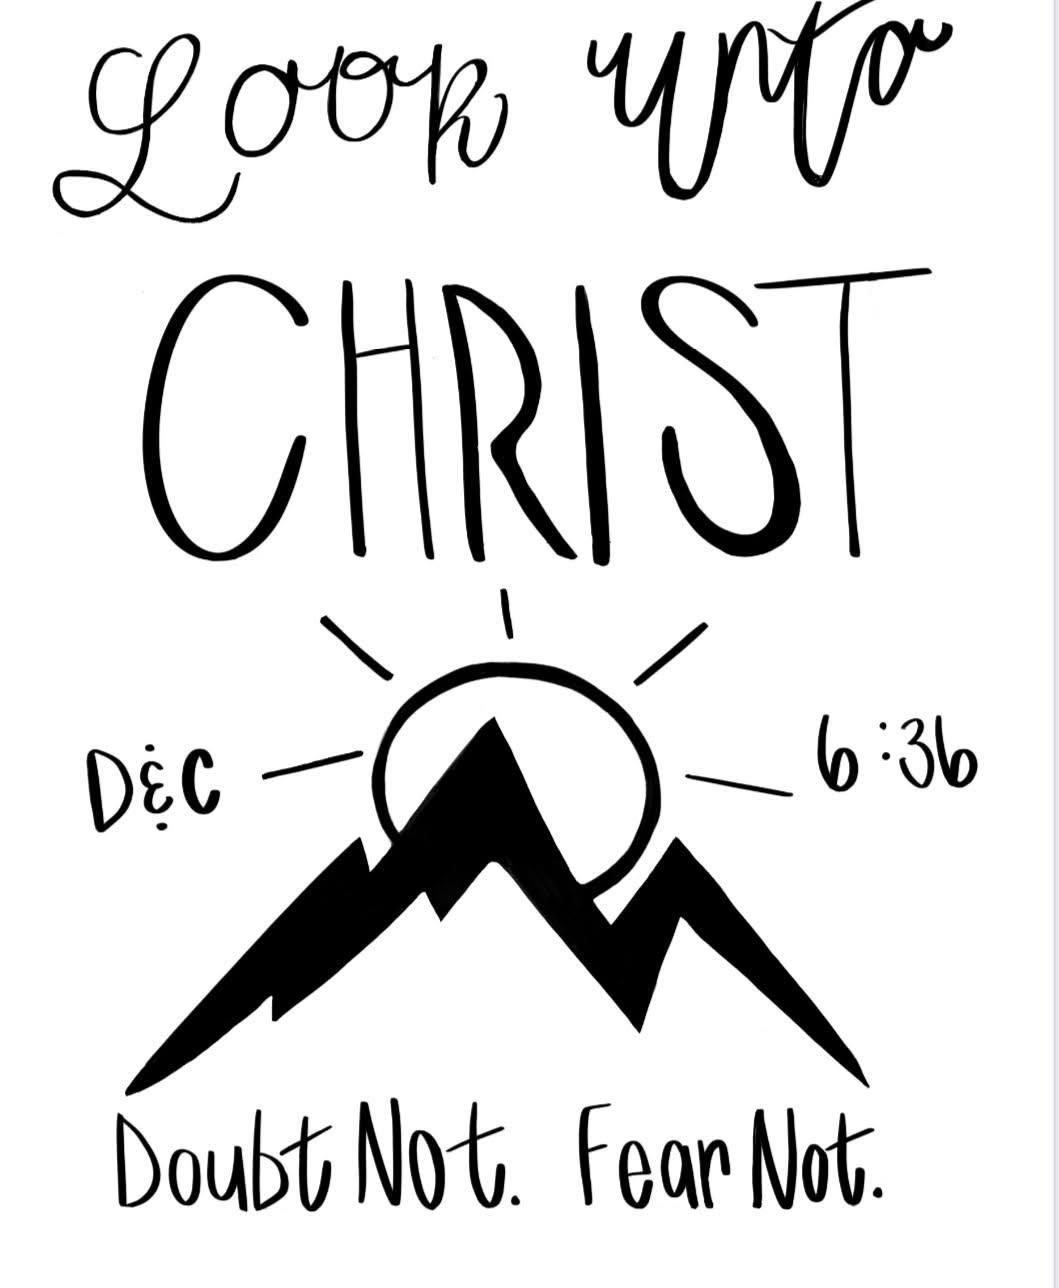 Look unto
CHRIST
D&C 6:36
Doubt Not. Fear Not.